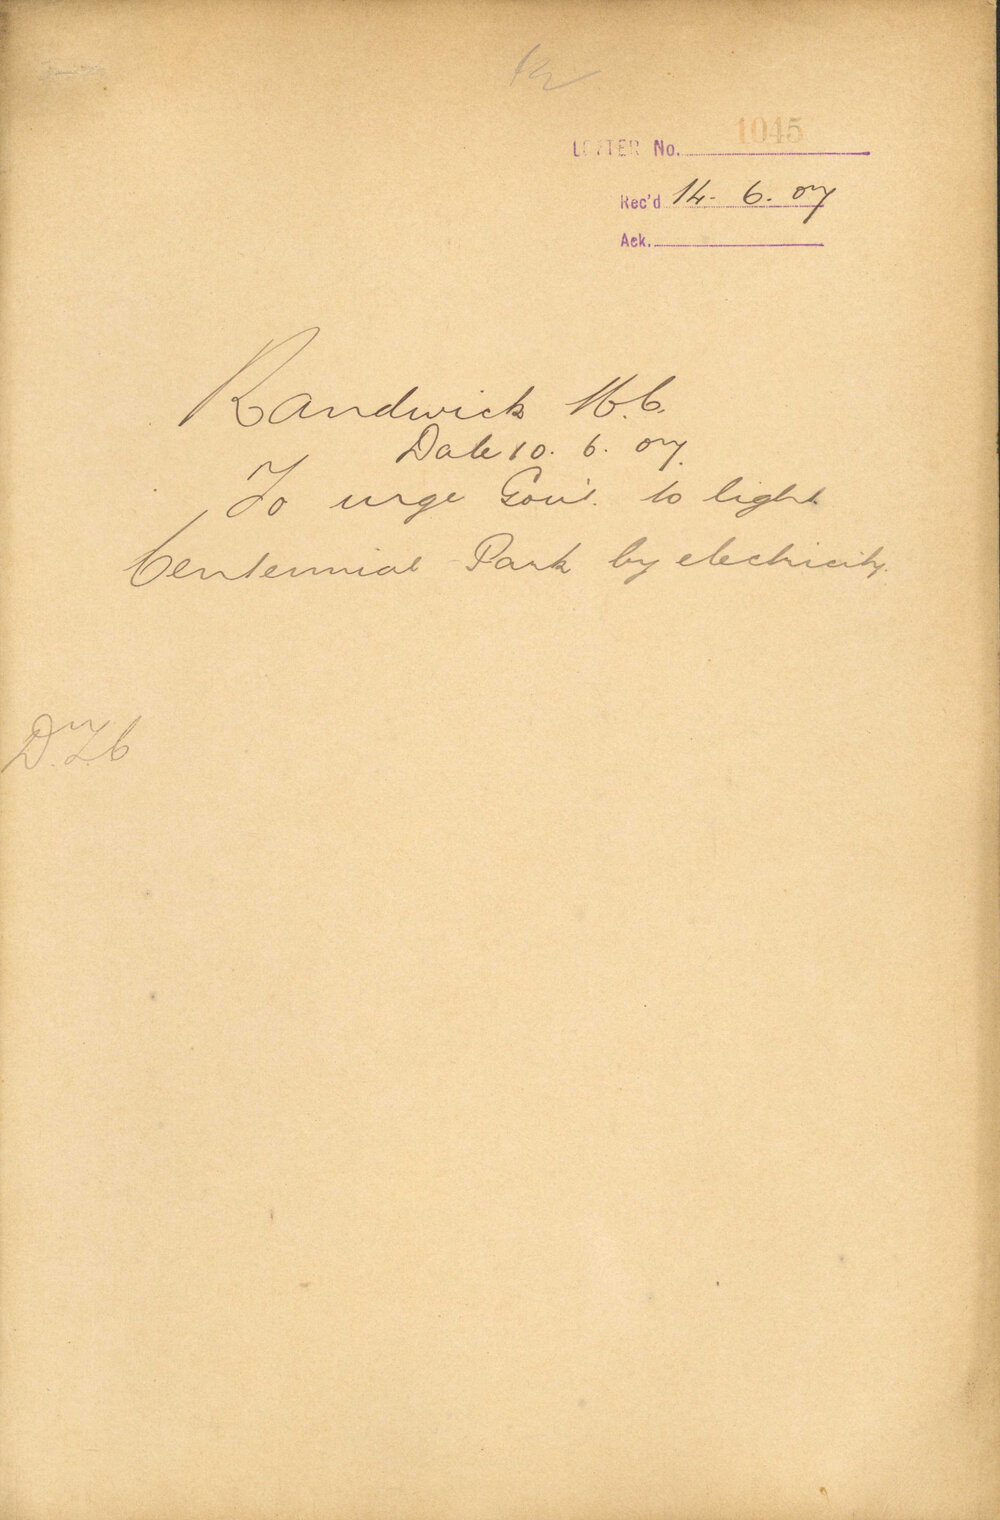 LETTER No. 1045
Rec'd 14. 6. 07
Ack.
Randwick M.C.
Date 10. 6. 07.
To urge Gov't. to light
Centennial Park by electricity.